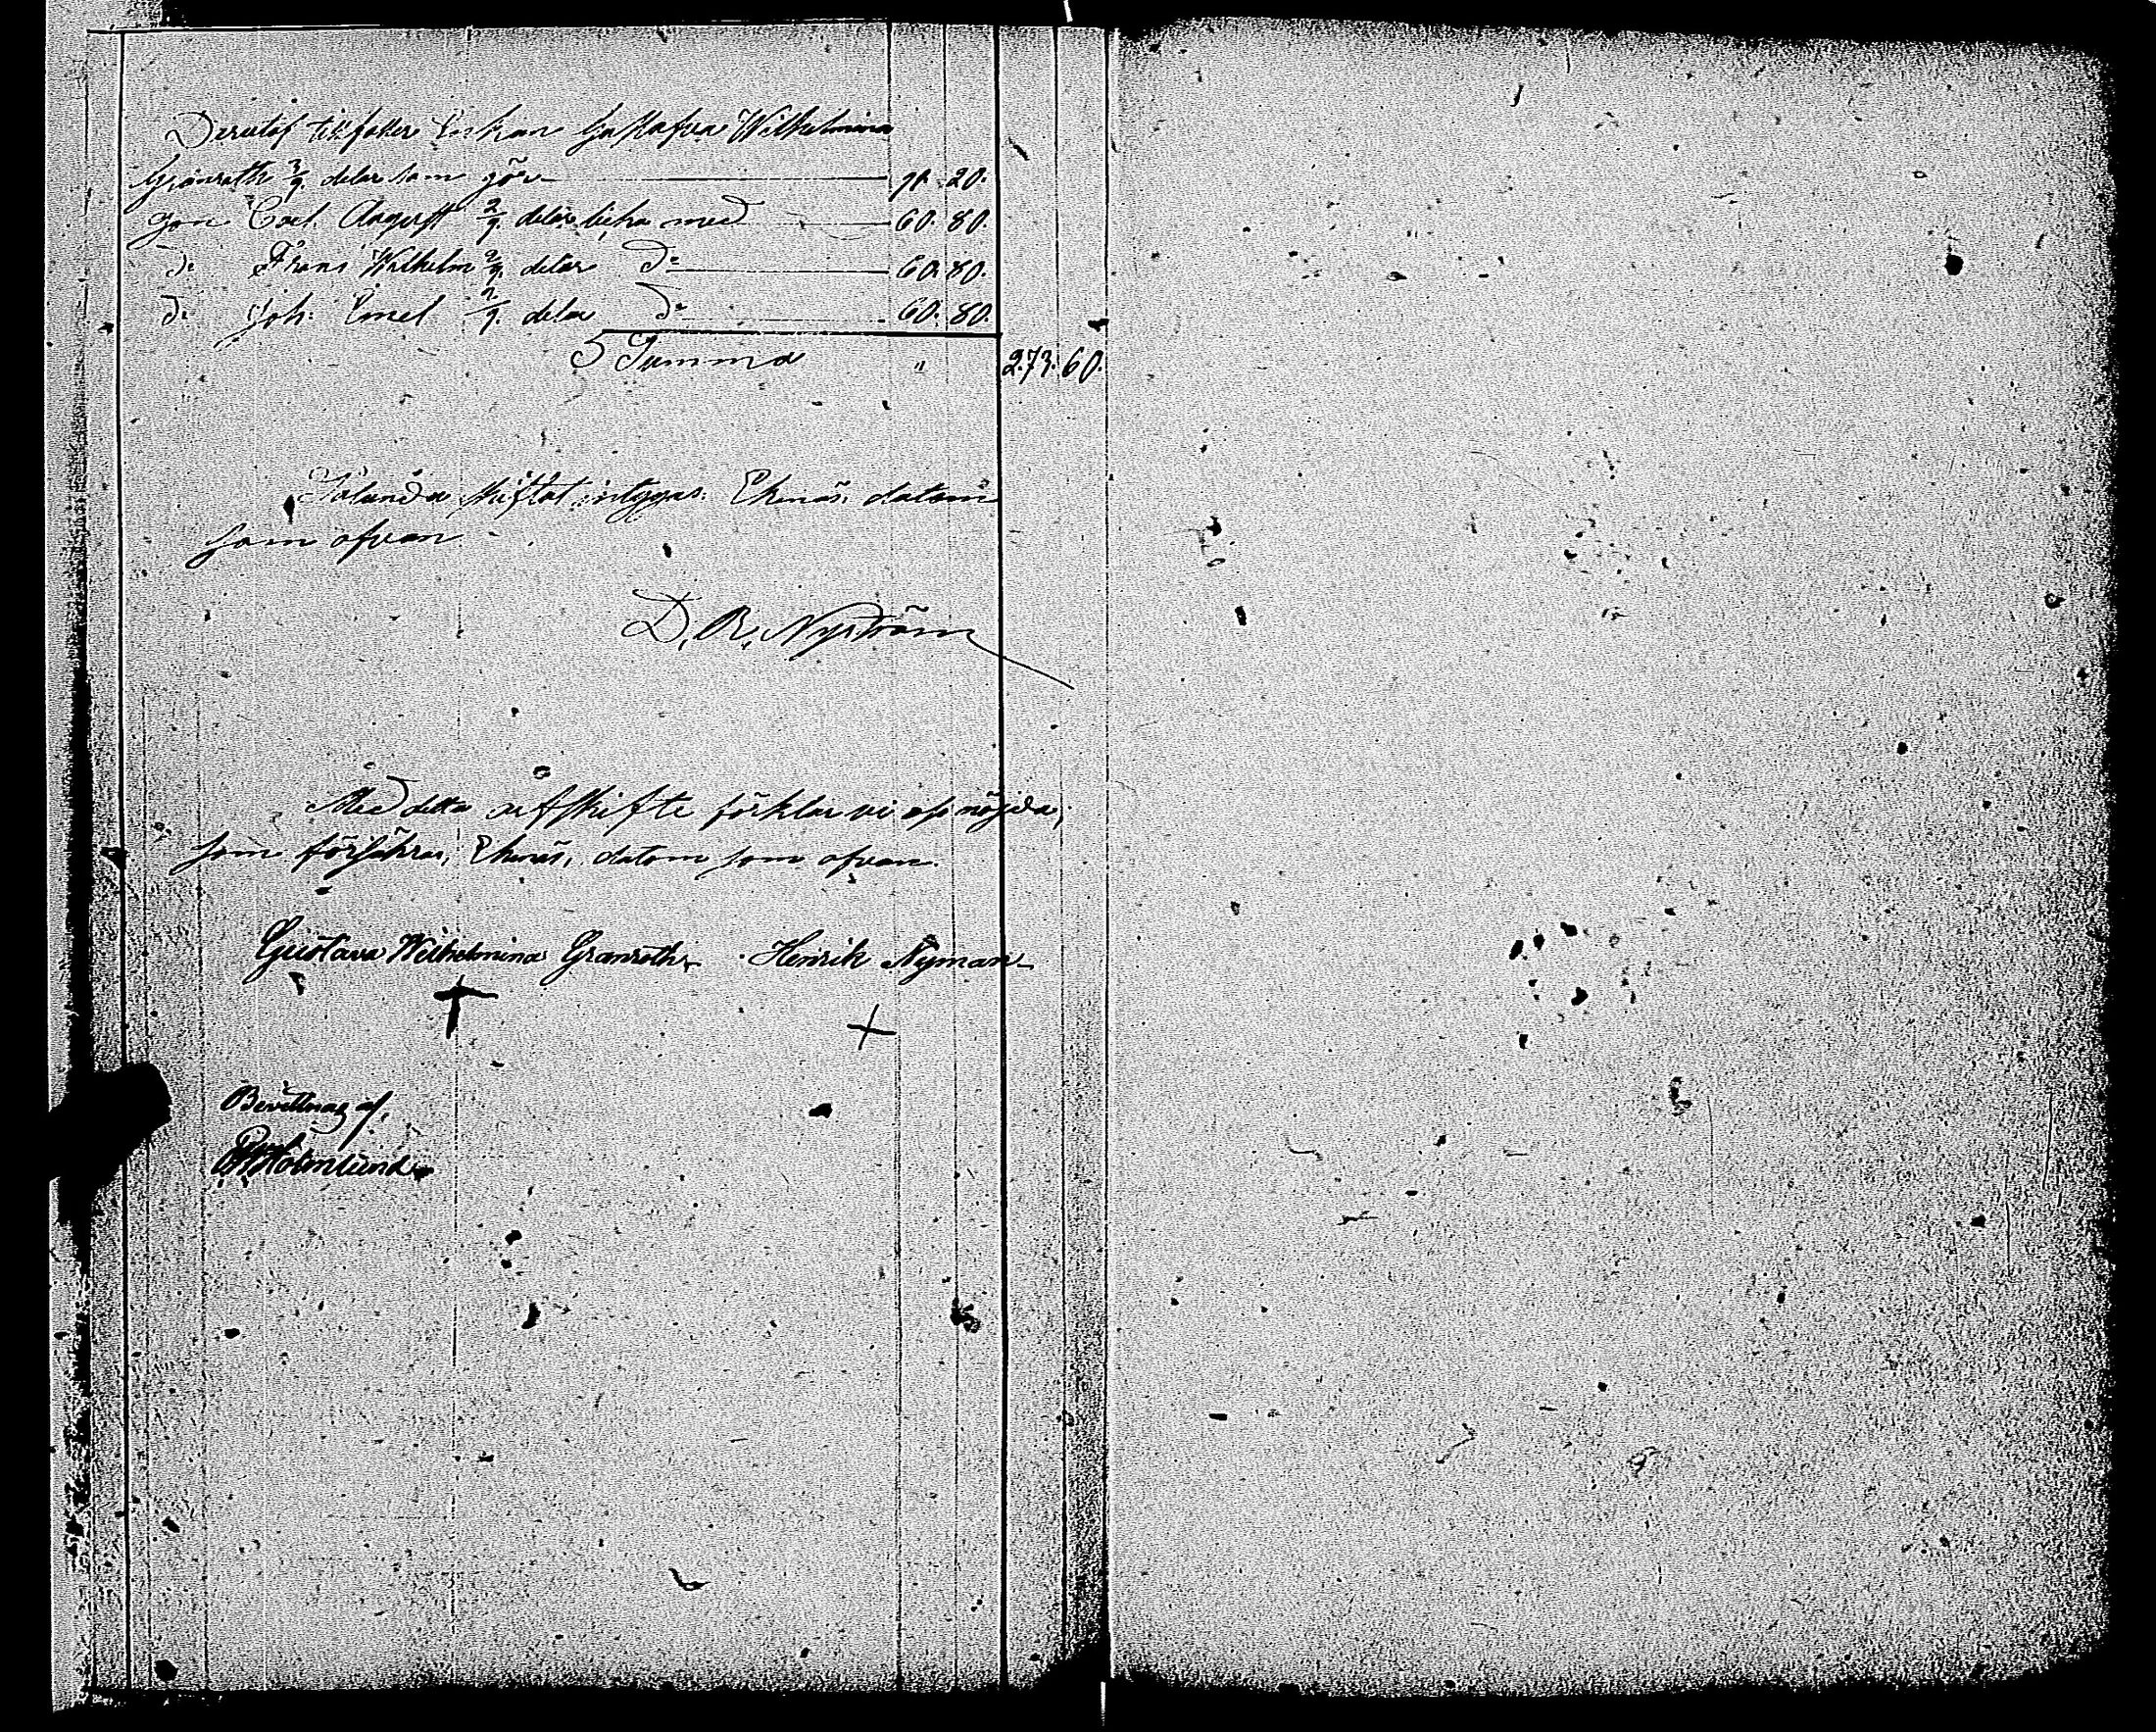 Derutaf tillfaller Enkan Gustafva Wilhelmina
Granroth 3/9 delar som gör 91. 20.
Son Carl August 2/9 delar lika med 60. 80.
d:o Frans Wilhelm 2/9 delar d:o 60. 80.
d:o Joh: Emel 2/9 delar d:o 60. 80.
Summa " 273. 60.
Sålunda skiftat intygas. Ekenäs, datum
som ofvan
D. R. Nyström
Med detta arfskifte förklar vi oss nöjda,
som försäkras, Ekenäs, datum som ofvan.
Gustava Wilhelmina Granroth Henrik Nyman
Bevittnas af,
Holmlund